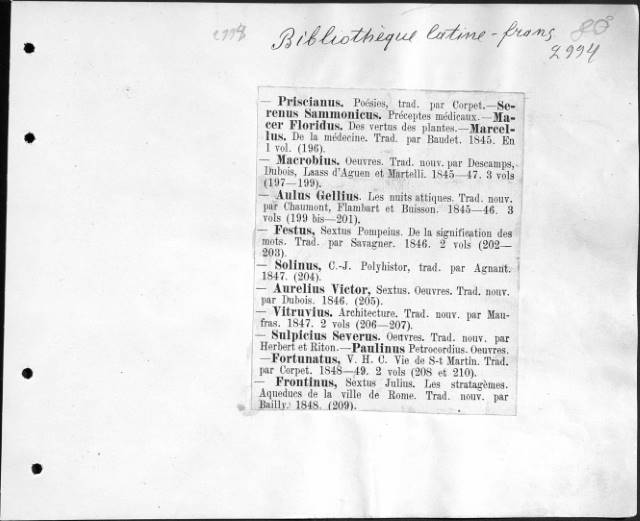 2994
Bibliothèque latine-franç
8°
2994
— Priscianus. Poésies, trad. par Corpet.—Se-
renus Sammonicus. Préceptes médicaux.—Ma-
cer Floridus. Des vertus des plantes.—Marcel-
lus. De la médecine. Trad. par Baudet. 1845. En
1 vol. (196).
— Macrobius. Oeuvres. Trad. nouv. par Descamps,
Dubois, Laass d'Aguen et Martelli. 1845—47. 3 vols
(197—199).
— Aulus Gellius. Les nuits attiques. Trad. nouv.
par Chaumont, Flambart et Buisson. 1845—46. 3
vols (199 bis—201).
— Festus, Sextus Pompeius. De la signification des
mots. Trad. par Savagner. 1846. 2 vols (202—
203).
— Solinus, C.-J. Polyhistor, trad. par Agnant.
1847. (204).
— Aurelius Victor, Sextus. Oeuvres. Trad. nouv.
par Dubois. 1846. (205).
— Vitruvius. Architecture. Trad. nouv. par Mau-
fras. 1847. 2 vols (206—207).
— Sulpicius Severus. Oeuvres. Trad. nouv. par
Herbert et Riton.—Paulinus Petrocordius. Oeuvres.
—Fortunatus, V. H. C. Vie de S-t Martin. Trad.
par Corpet. 1848—49. 2 vols (208 et 210).
— Frontinus, Sextus Julius. Les stratagèmes.
Aqueducs de la ville de Rome. Trad. nouv. par
Bailly. 1848. (209).